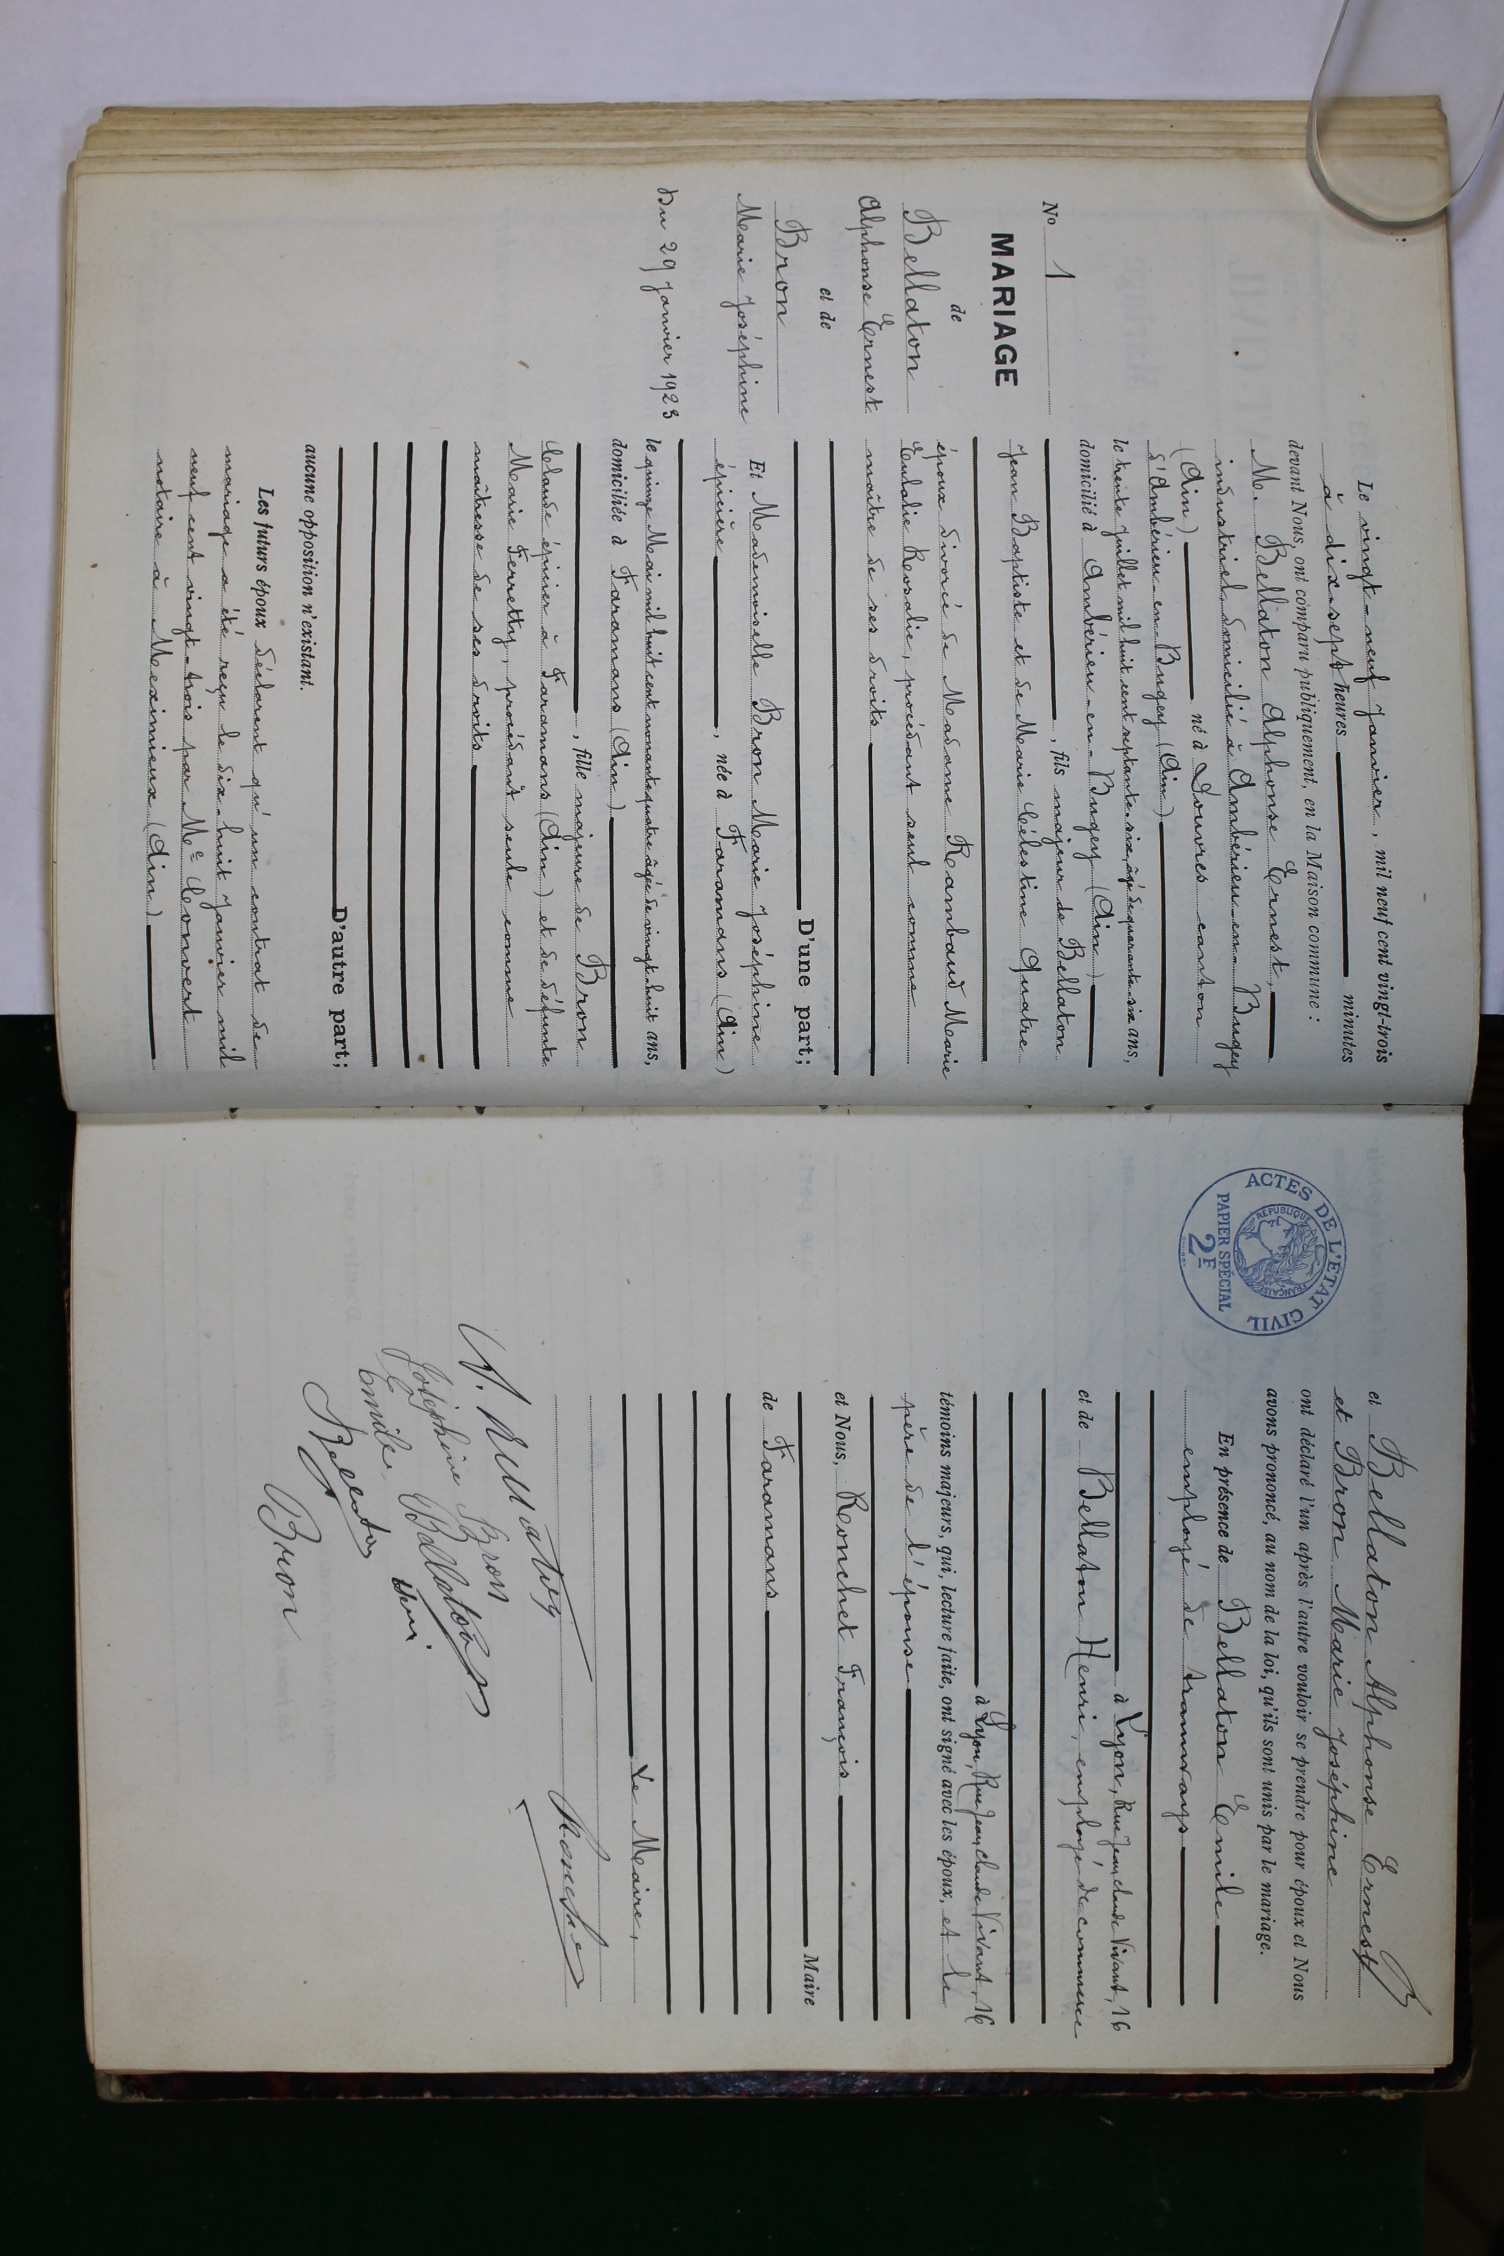 No 1
MARIAGE
de
Bellaton
Alphonse Ernest
et de
Bron
Marie Joséphine
Du 29 Janvier 1923
Le vingt-neuf Janvier, mil neuf cent vingt-trois
à dix-sept heures minutes
devant Nous, ont comparu publiquement, en la Maison commune :
M. Bellaton Alphonse Ernest,
industriel, domicilié à Ambérieu-en-Bugey
(Ain) né à Douvres canton
d'Ambérieu-en-Bugey (Ain)
le trente Juillet mil huit cent septante-six, âgé de quarante-six ans,
domicilié à Ambérieu-en-Bugey (Ain)
, fils majeur de Bellaton
Jean Baptiste et de Marie Célestine Quatre
époux divorcé de Madame Rambaud Marie
Eulalie Rosalie, procédant seul comme
maître de ses droits
D'une part;
Et Mademoiselle Bron Marie Joséphine
épicière , née à Faramans (Ain)
le quinze Mai mil huit cent nonante quatre âgée de vingt-huit ans,
domiciliée à Faramans (Ain)
, fille majeure de Bron
Claude épicier à Faramans (Ain) et de défunte
Marie Ferretty, procédant seule comme
maîtresse de ses droits
D'autre part;
aucune opposition n'existant.
Les futurs époux déclarent qu'un contrat de
mariage a été reçu le dix-huit Janvier mil
neuf cent vingt-trois par Me Convert
notaire à Meximieux (Ain)
ACTES DE L'ÉTAT CIVIL
RÉPUBLIQUE FRANÇAISE
PAPIER SPÉCIAL
2F
et Bellaton Alphonse Ernest
et Bron Marie Joséphine
ont déclaré l'un après l'autre vouloir se prendre pour époux et Nous
avons prononcé, au nom de la loi, qu'ils sont unis par le mariage.
En présence de Bellaton Emile
employé de tramways
à Lyon, Rue Jean claude Vivant, 16
et de Bellaton Henri, employé de commerce
à Lyon, Rue Jean claude Vivant, 16
témoins majeurs, qui, lecture faite, ont signé avec les époux, et le
père de l'épouse
et Nous, Ronchet François
Maire
de Faramans
Le Maire,
Ronchet
Joséphine Bron
Emile Bellaton
Bellaton Henri
Bron